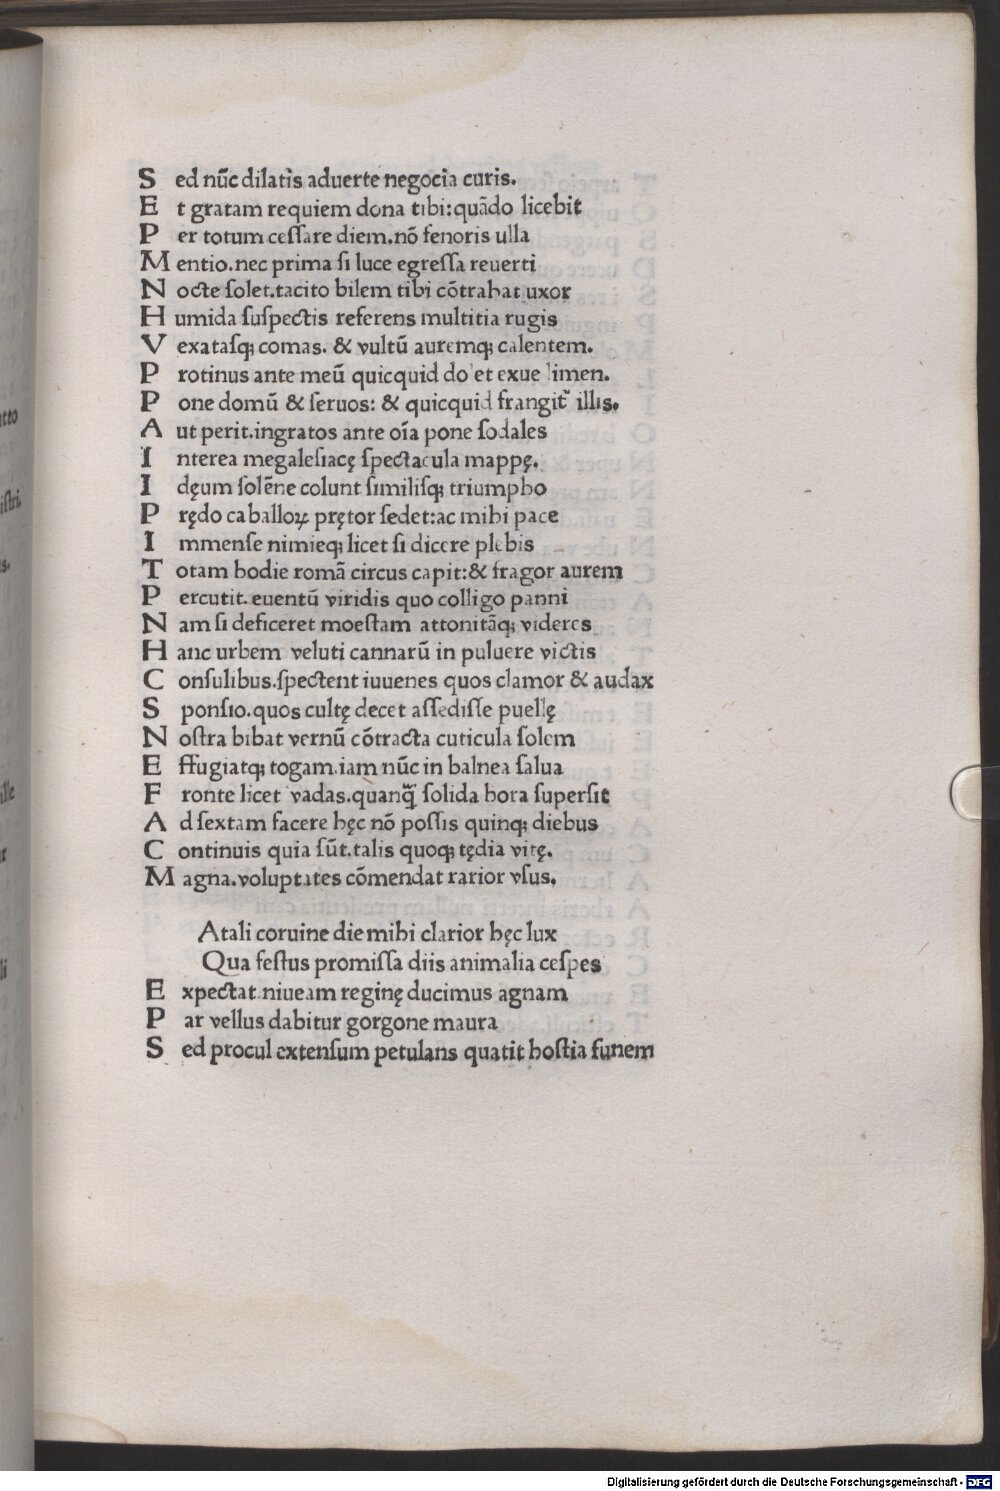 S ed nūc dilatis aduerte negocia curis.
E t gratam requiem dona tibi: quādo licebit
P er totum cessare diem. nō fenoris ulla
M entio. nec prima si luce egressa reuerti
N octe solet. tacito bilem tibi cōtrahat uxor
H umida suspectis referens multitia rugis
V exatasq; comas. & vultū auremq; calentem.
P rotinus ante meū quicquid dolet exue limen.
P one domū & seruos: & quicquid frangit᷑ illis.
A ut perit. ingratos ante oīa pone sodales
I nterea megalesiacę spectacula mappę.
I dęum solēne colunt similisq; triumpho
P rędo caballoꝝ prętor sedet: ac mihi pace
I mmense nimieq; licet si dicere plebis
T otam hodie romā circus capit: & fragor aurem
P ercutit. euentū viridis quo colligo panni
N am si deficeret moestam attonitāq; videres
H anc urbem veluti cannarū in puluere victis
C onsulibus. spectent iuuenes quos clamor & audax
S ponsio. quos cultę decet assedisse puellę
N ostra bibat vernū cōtracta cuticula solem
E ffugiatq; togam. iam nūc in balnea salua
F ronte licet vadas. quanq̄ solida hora supersit
A d sextam facere hęc nō possis quinq; diebus
C ontinuis quia sūt. talis quoq; tędia vitę.
M agna. voluptates cōmendat rarior vsus.
Atali coruine die mihi clarior hęc lux
Qua festus promissa diis animalia cespes
E xpectat. niueam reginę ducimus agnam
P ar vellus dabitur gorgone maura
S ed procul extensum petulans quatit hostia funem
Digitalisierung gefördert durch die Deutsche Forschungsgemeinschaft - DFG